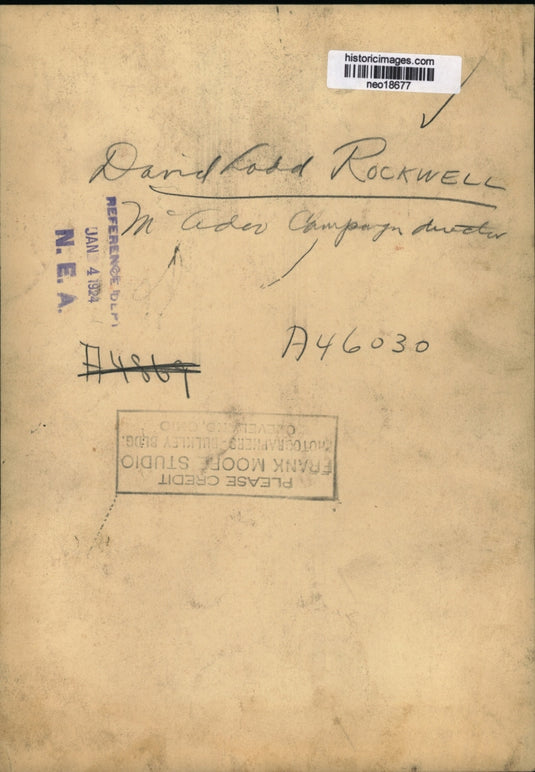 historicimages.com
neo18677
David Ladd ROCKWELL
McAdoo Campaign director
REFERENCE DEPT
JAN 4 1924
N. E. A.
A46030
A4869
PLEASE CREDIT
FRANK MOORE STUDIO
PHOTOGRAPHERS - BULKLEY BLDG.
CLEVELAND, OHIO